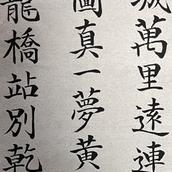 萬里遠連
真一夢黃
龍橋站別乾